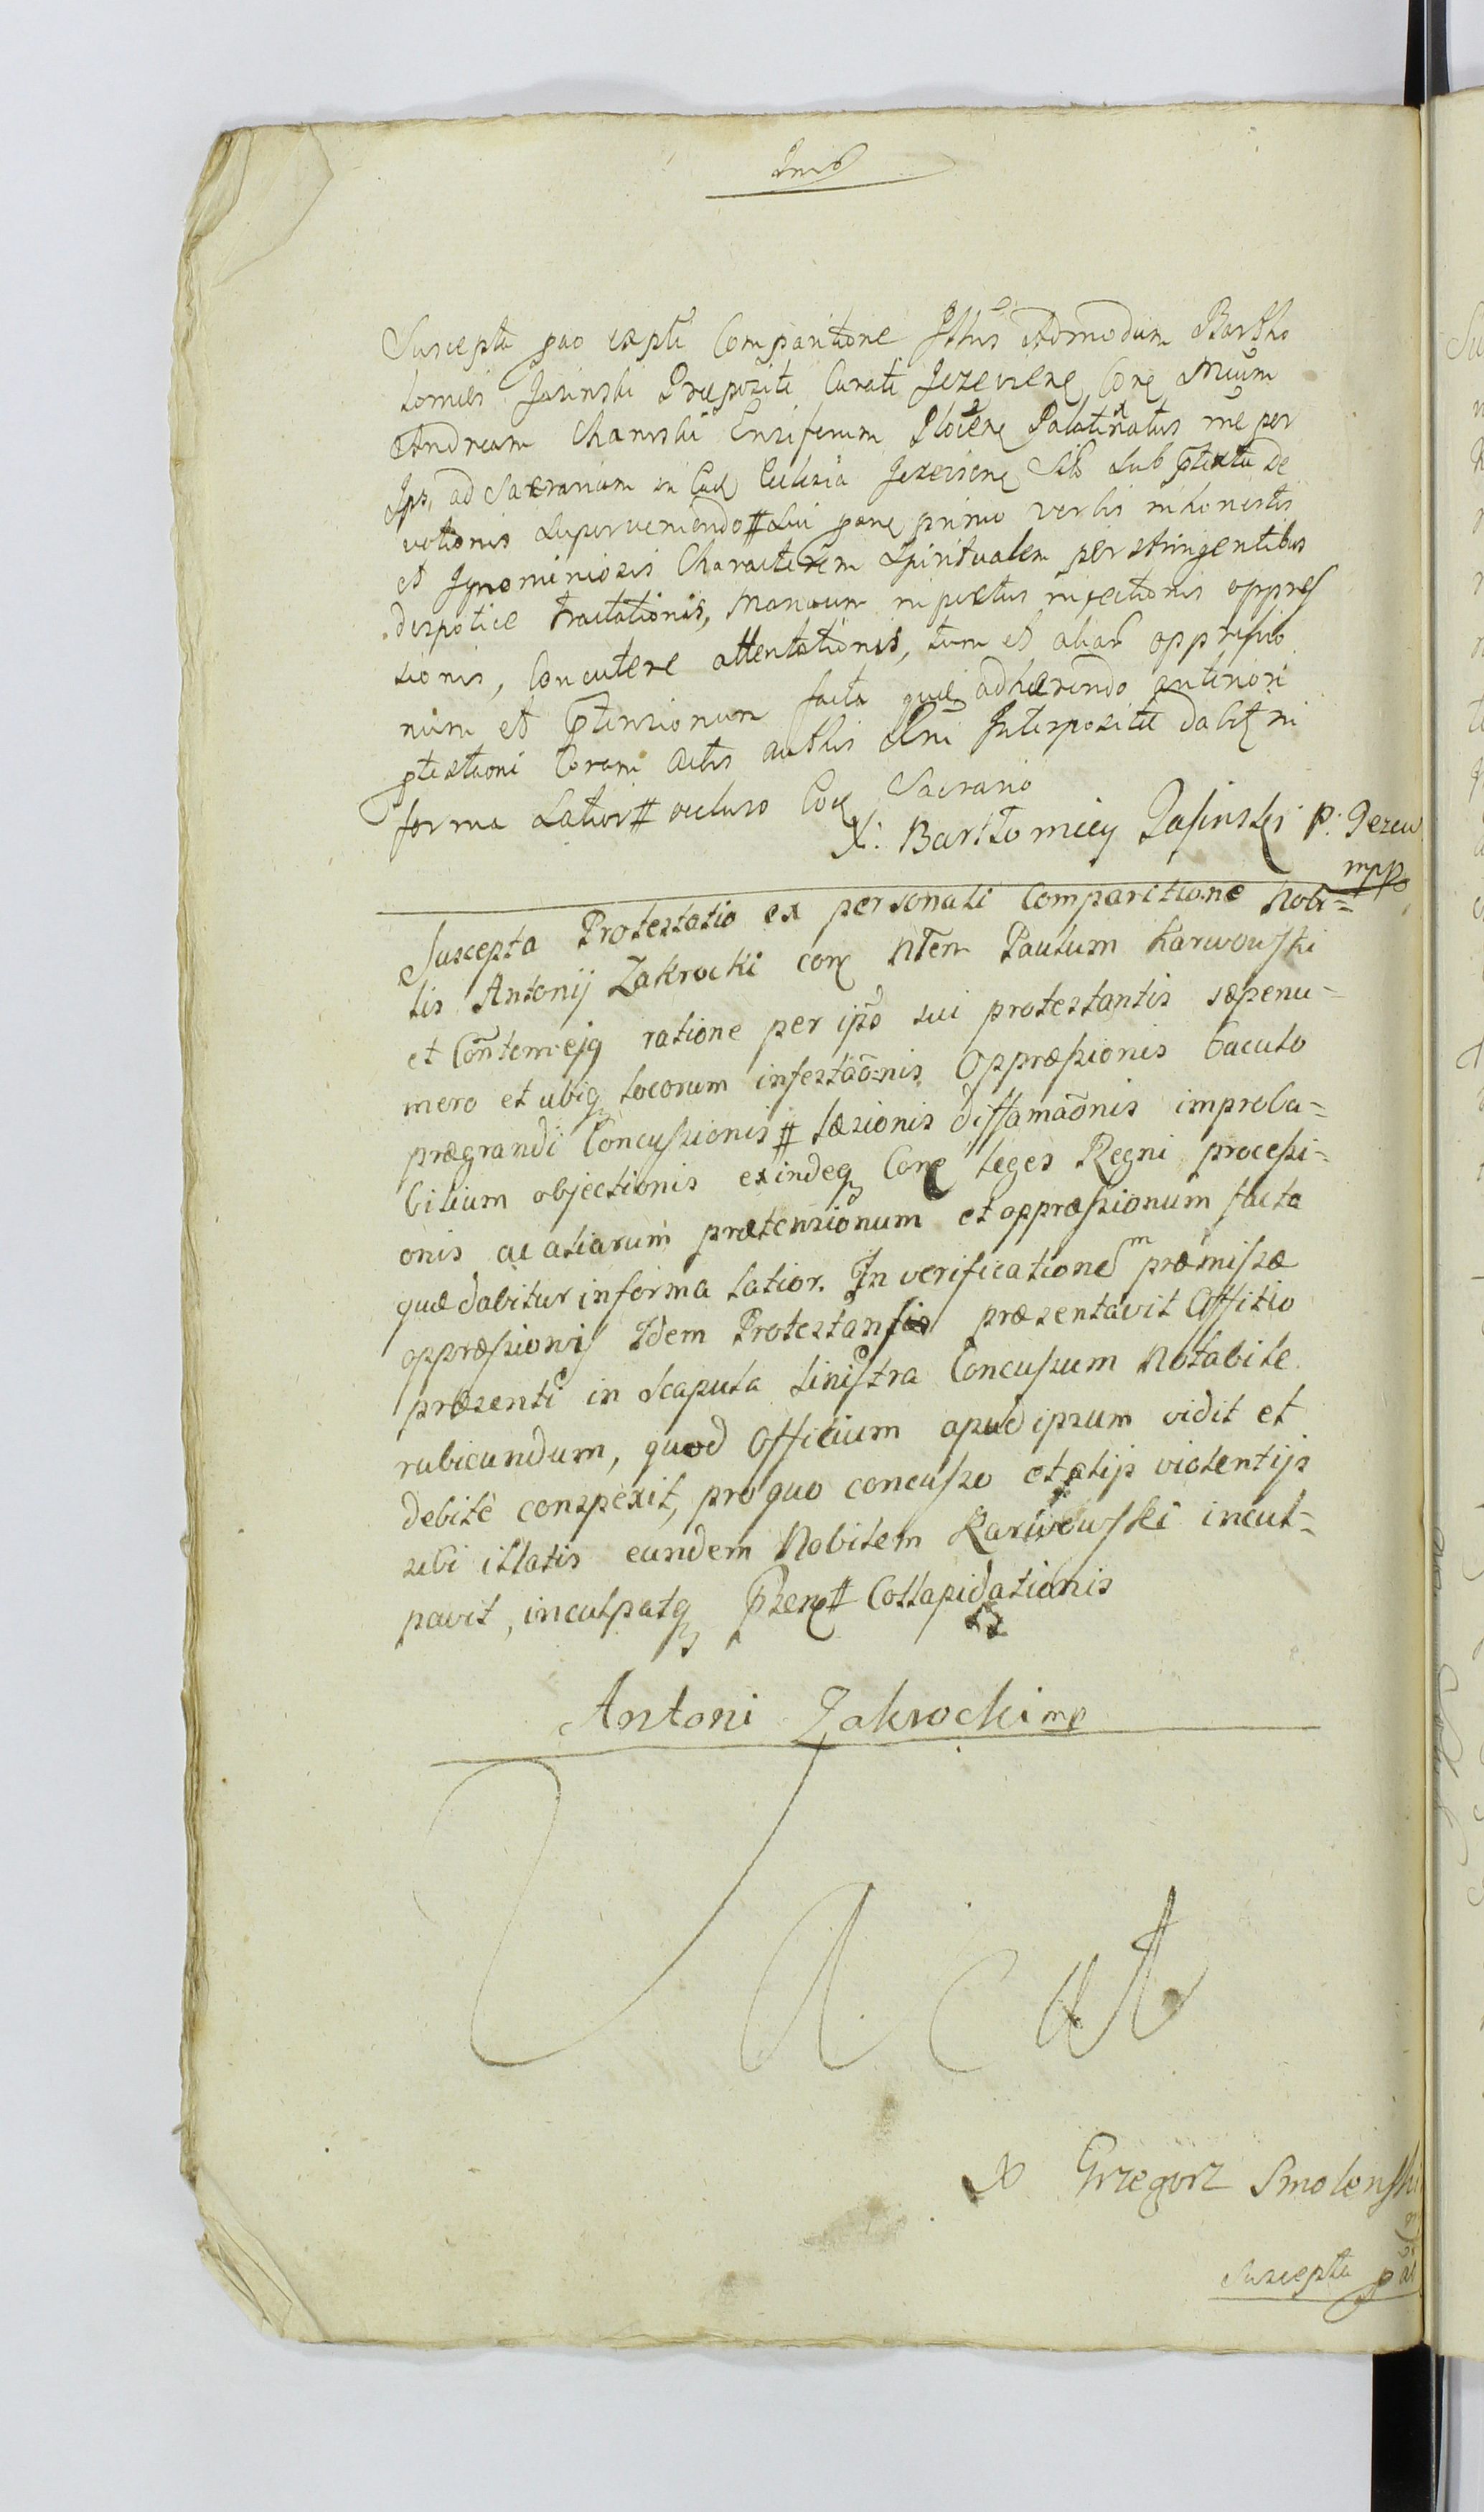 Suscepta pao ex psli Comparitione Ittris Admodum Bartho
lomei Jasinski Præpositi Curati Jezeviene Cone Mcum
Andream Chamski Ensiferum Plocene Palatinatus rne per
Ips, ad Sacrarium in Ead Ecclesia Jezeviene Sibi sub ptextu De
votionis superveniendo # sui pane primo verbis inhonestis
et Ignominiosis Characterem Spiritualem perstringentibus
despotice tractationis, Manuum in pectus injectionis oppres
sionis, Concutere attentationis, tum et aliar oppressio
num et ptensionum facta quæ adhærendo anteriori
ptestaoni Coram Actis authis Interposite dabit in
forma Latior # occluso Eod Sacrario
X: Bartlomiey Jasinski P: Jezew
mpp
Suscepta Protestatio ex personali Comparitione Nobi=
lis Antonij Zakrocki cone Nlem Paulum Karwowski
et Contemejq ratione per ipso sui protestantis sæpenu=
mero et ubiq locorum infestaonis Oppræssionis baculo
prægrandi Concussionis # læsionis diffamaonis improba=
bilium objectionis exindeq Cone leges Regni processi=
onis ac aliarum prætensionum et oppræssionum facta
quæ dabitur in forma latior. In verificationem præmissæ
oppræssionis Idem Protestans præsentavit Officio
præsenti in scapula sinistra Concussum Notabile
rubicundum, quod Officium apud ipsum vidit et
debite conspexit, pro quo concusso et alijs violentijs
sibi illatis eundem Nobilem Karwowski incul=
pavit, inculpatq psene # Collapidationis
Antoni Zakrocki mp
Vacat
X Grzegorz Smolenski
Suscepta